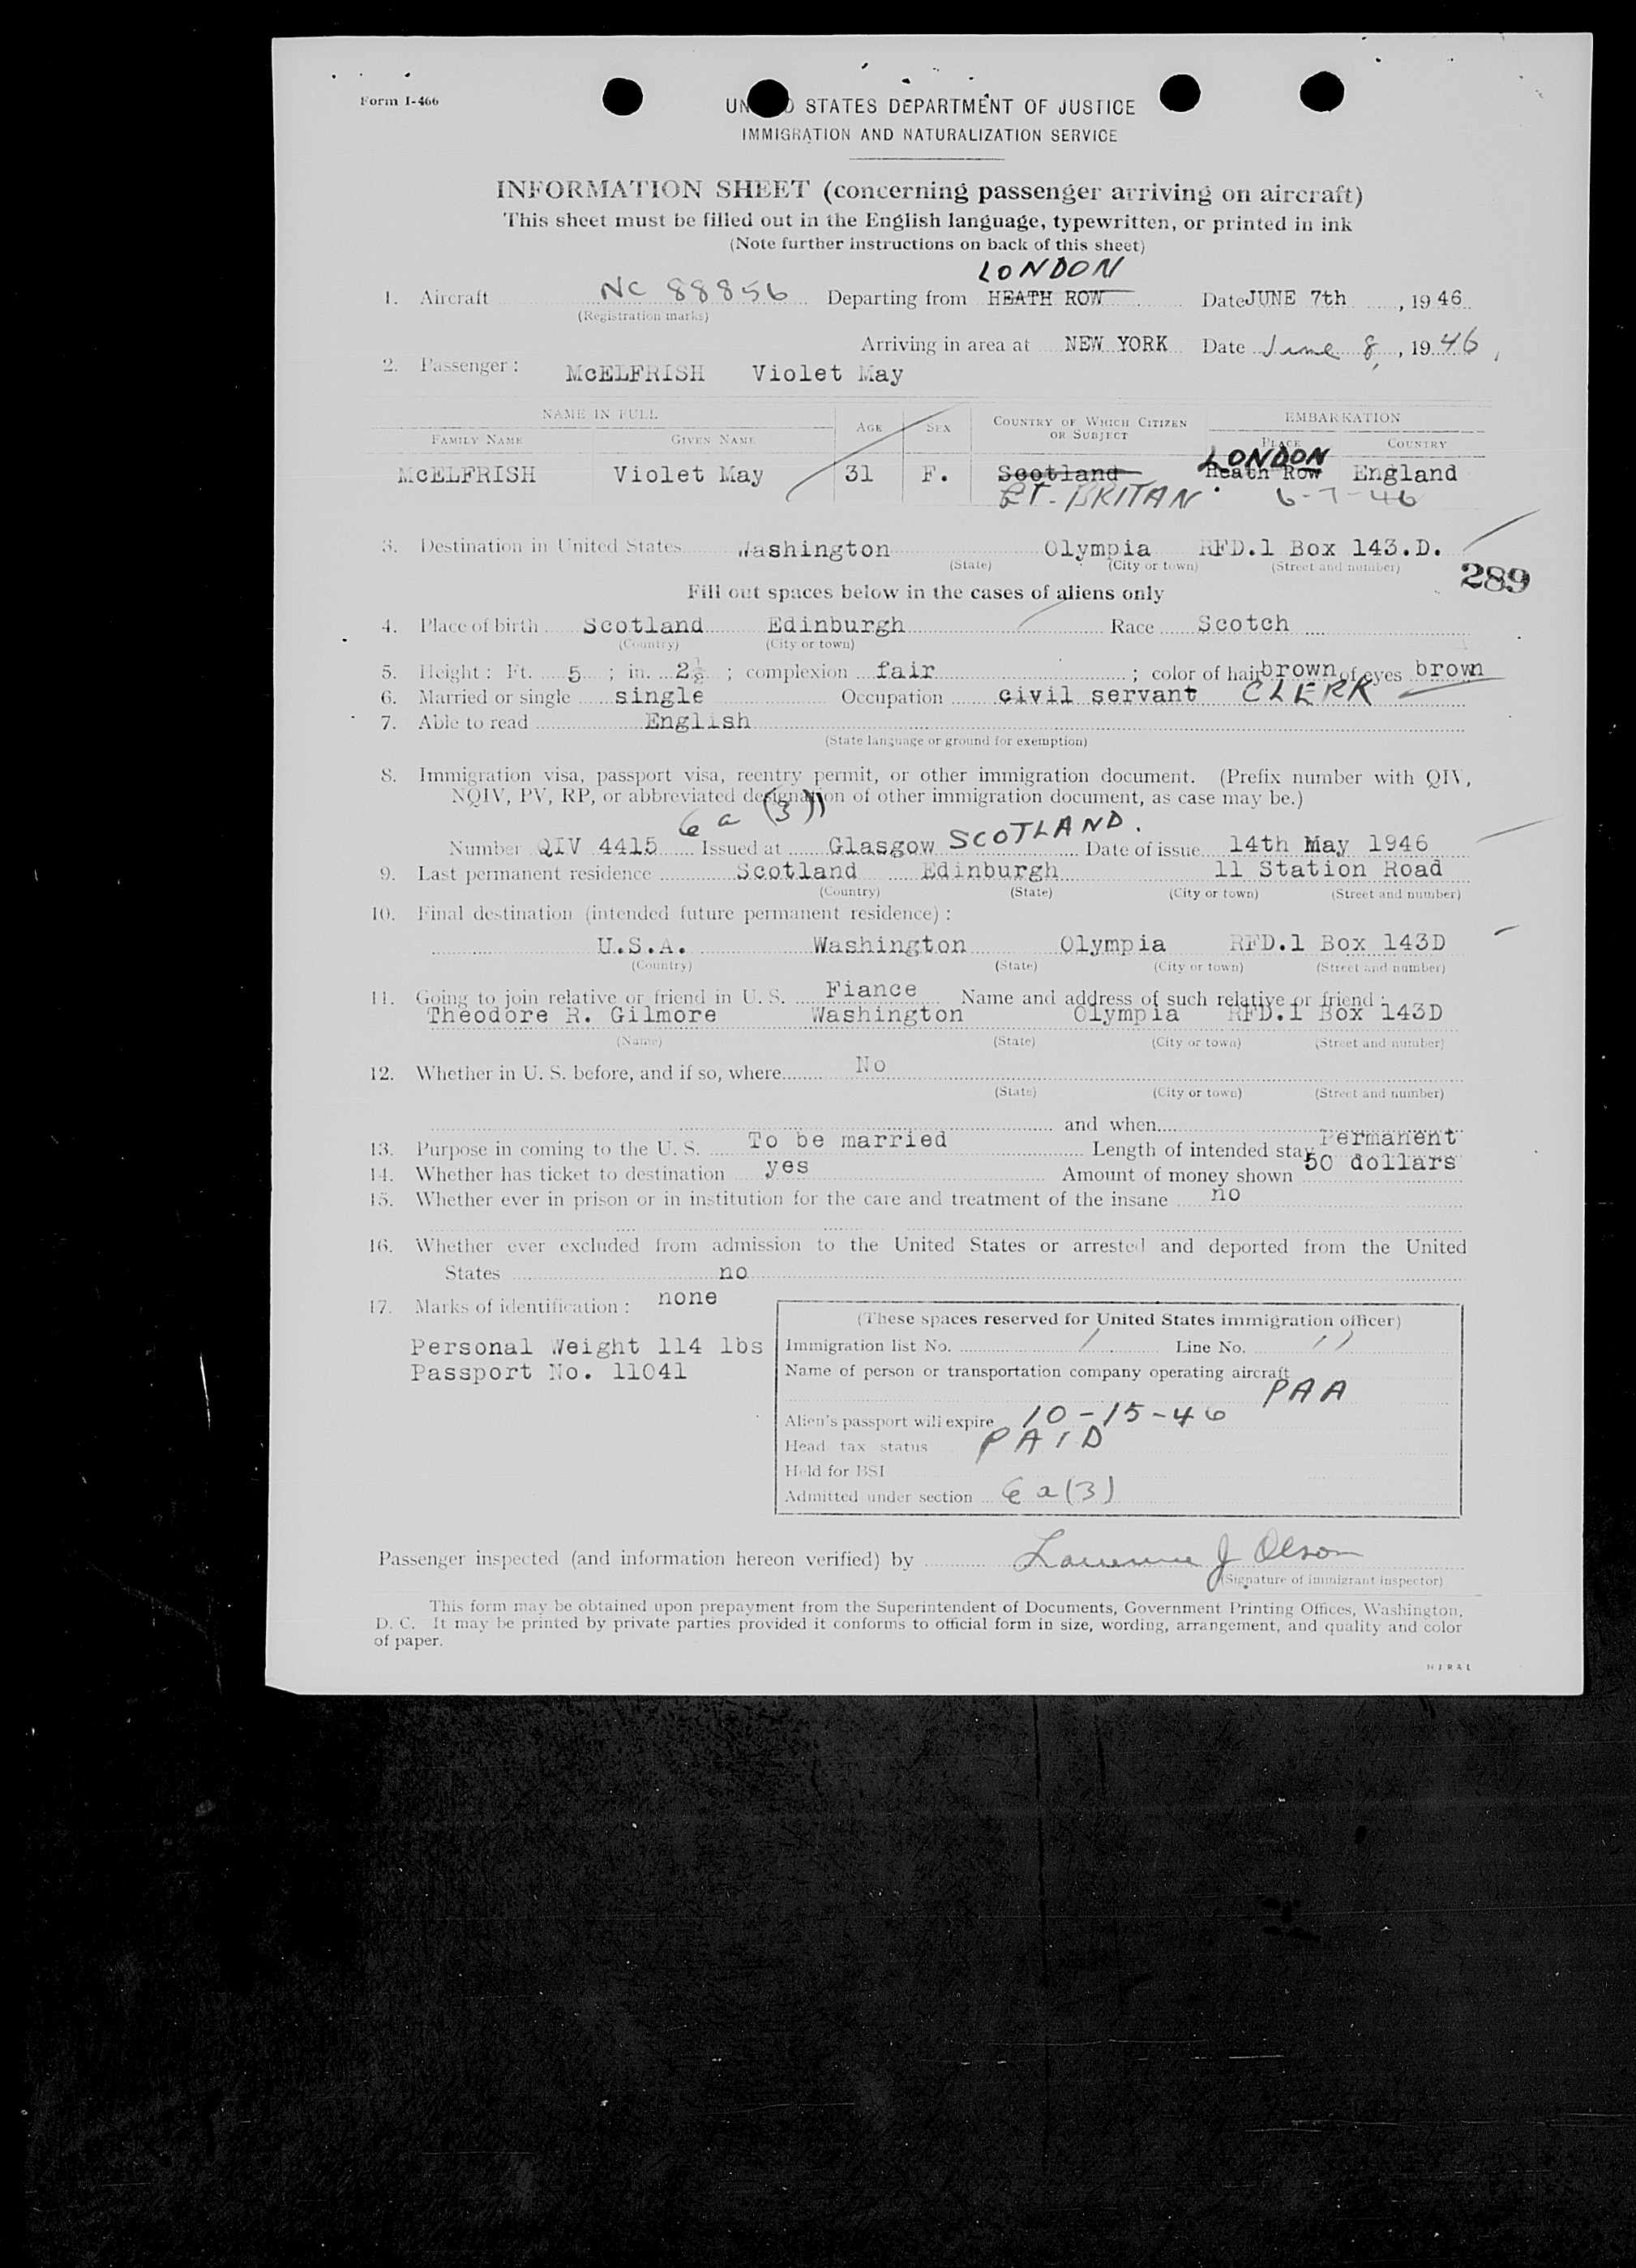 Form I-466
STATES DEPARTMENT OF JUSTICE
IMMIGRATION AND NATURALIZATION SERVICE
INFORMATION SHEET (concerning passenger arriving on aircraft)
This sheet must be filled out in the English language, typewritten, or printed in ink
(Note further instructions on back of this sheet)
LONDON
1. Aircraft NC 88856 Departing from HEATH ROW Date JUNE 7th, 1946
(Registration marks)
Arriving in area at NEW YORK Date June 8, 1946
2. Passenger: McELFRISH Violet May
NAME IN FULL AGE SEX COUNTRY OF WHICH CITIZEN OR SUBJECT EMBARKATION
FAMILY NAME GIVEN NAME PLACE COUNTRY
LONDON
McELFRISH Violet May 31 F. Scotland Heath Row England
GT. BRITAN 6-7-46
3. Destination in United States Washington Olympia RFD.1 Box 143.D.
(State) (City or town) (Street and number)
289
Fill out spaces below in the cases of aliens only
4. Place of birth Scotland Edinburgh Race Scotch
(Country) (City or town)
5. Height: Ft. 5; in. 2½; complexion fair; color of hair brown of eyes brown
6. Married or single single Occupation civil servant CLERK
7. Able to read English
(State language or ground for exemption)
8. Immigration visa, passport visa, reentry permit, or other immigration document. (Prefix number with QIV,
NQIV, PV, RP, or abbreviated designation of other immigration document, as case may be.)
6 a (3)
Number QIV 4415 Issued at Glasgow SCOTLAND. Date of issue 14th May 1946
9. Last permanent residence Scotland Edinburgh 11 Station Road
(Country) (State) (City or town) (Street and number)
10. Final destination (intended future permanent residence):
U.S.A. Washington Olympia RFD.1 Box 143D
(Country) (State) (City or town) (Street and number)
11. Going to join relative or friend in U. S. Fiance Name and address of such relative or friend:
Theodore R. Gilmore Washington Olympia RFD.1 Box 143D
(Name) (State) (City or town) (Street and number)
12. Whether in U. S. before, and if so, where No
(State) (City or town) (Street and number)
and when
13. Purpose in coming to the U. S. To be married Length of intended stay Permanent
14. Whether has ticket to destination yes Amount of money shown 50 dollars
15. Whether ever in prison or in institution for the care and treatment of the insane no
16. Whether ever excluded from admission to the United States or arrested and deported from the United
States no
17. Marks of identification: none
Personal Weight 114 lbs
Passport No. 11041
(These spaces reserved for United States immigration officer)
Immigration list No. 1 Line No. 11
Name of person or transportation company operating aircraft
PAA
Alien's passport will expire 10-15-46
Head tax status PAID
Held for BSI
Admitted under section 6 a (3)
Passenger inspected (and information hereon verified) by Lawrence J Olson
(Signature of immigrant inspector)
This form may be obtained upon prepayment from the Superintendent of Documents, Government Printing Offices, Washington,
D. C. It may be printed by private parties provided it conforms to official form in size, wording, arrangement, and quality and color
of paper.